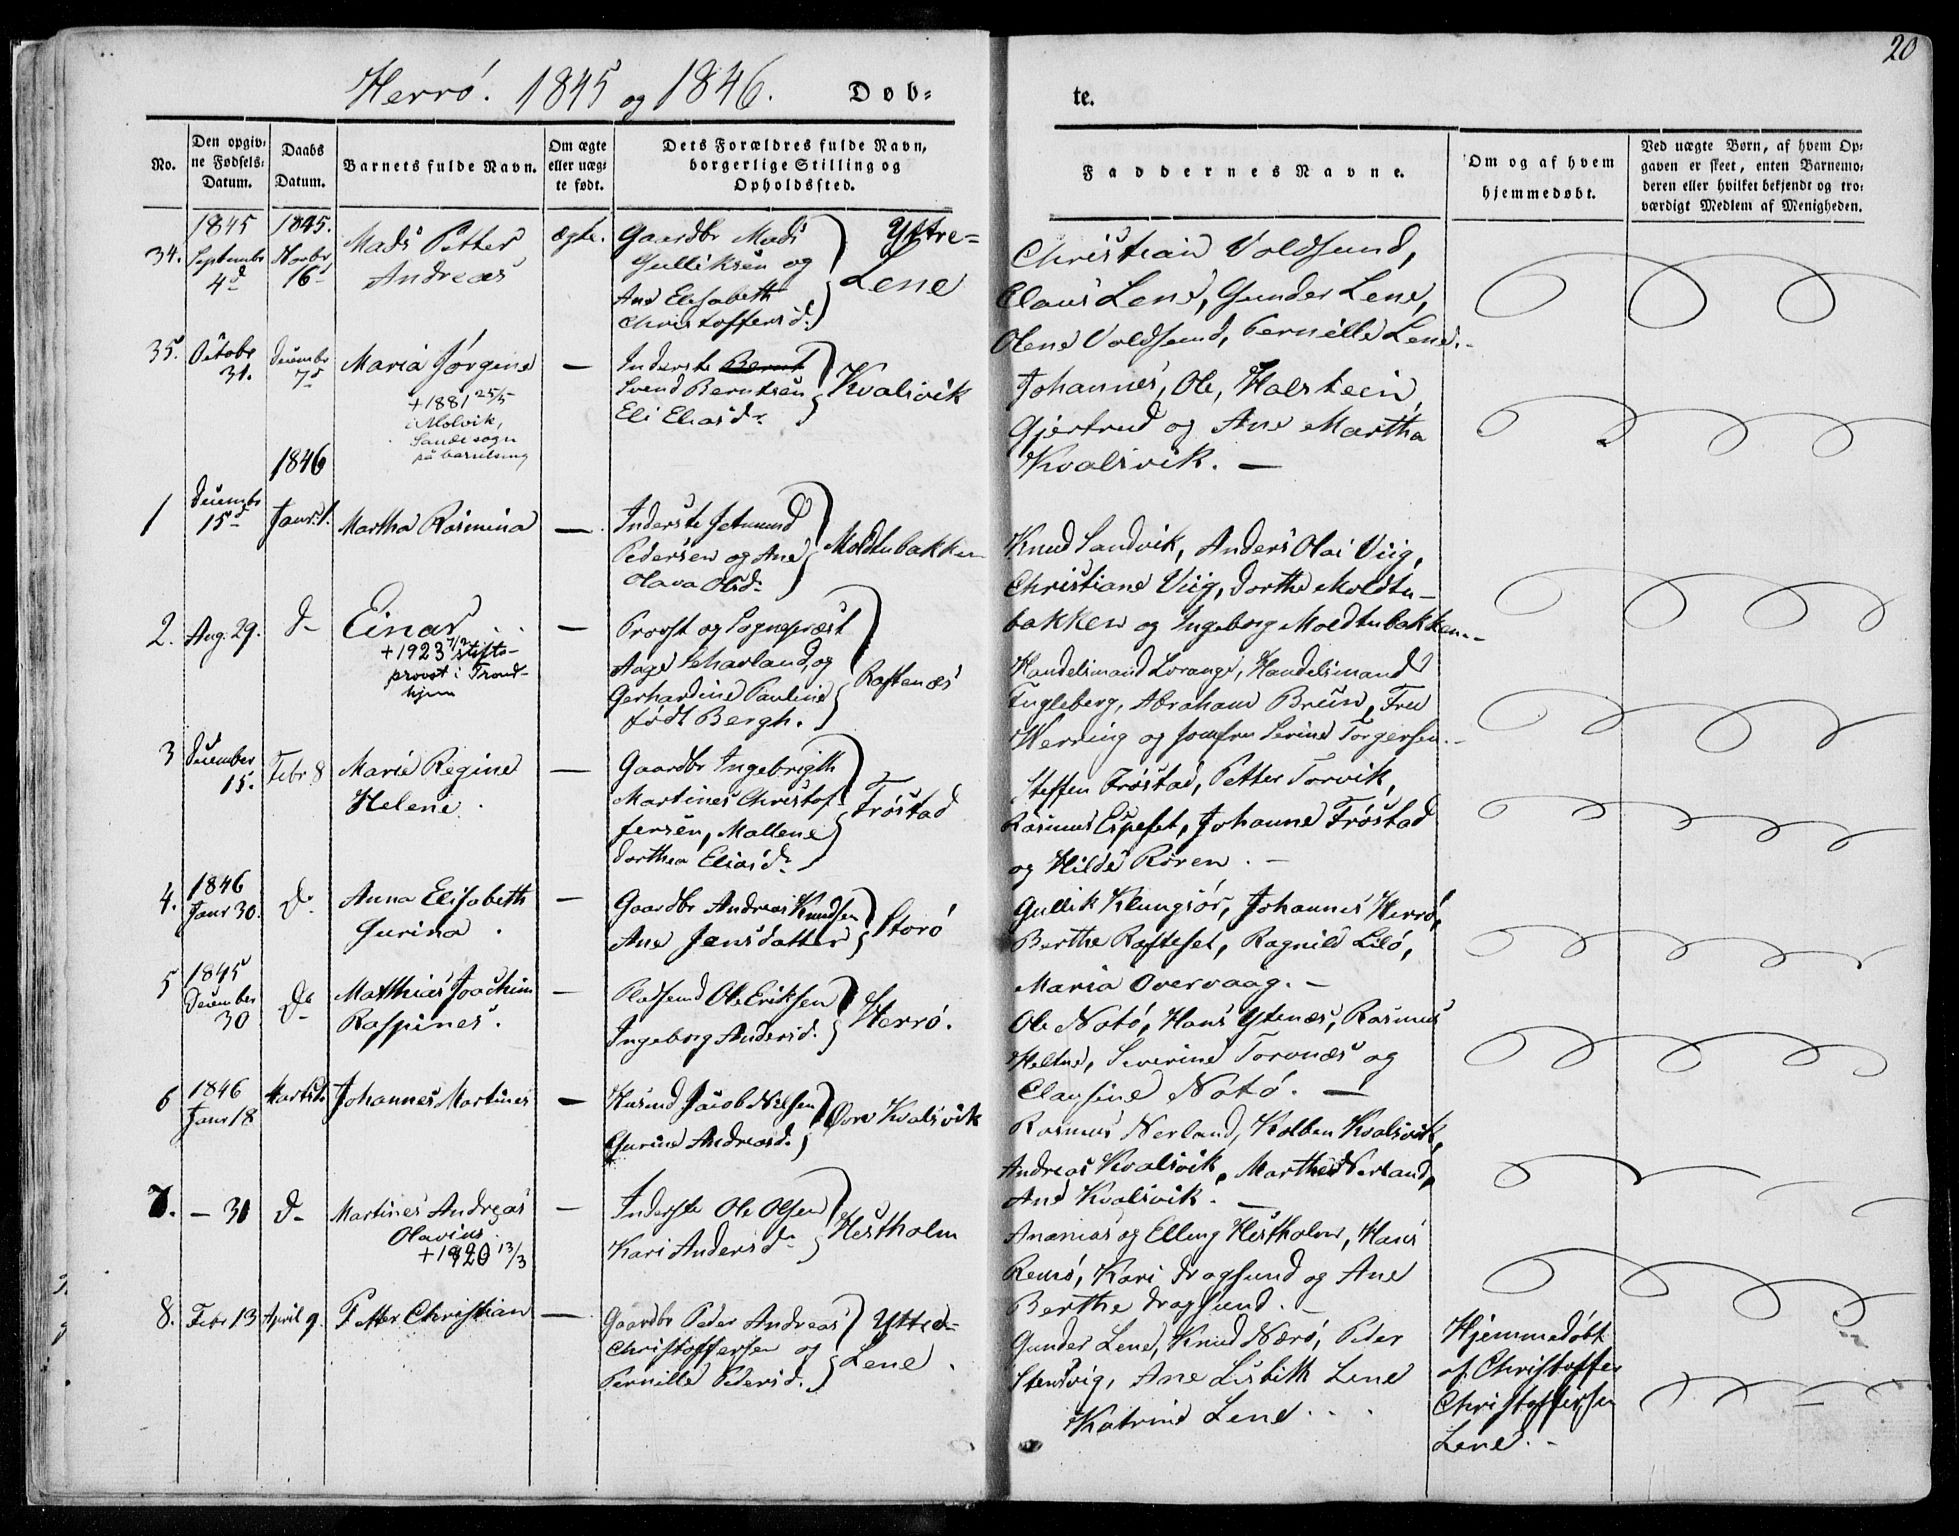 20
Herrö. 1845 og 1846. Døb-
te.
No.
Den opgiv-
ne Fødsels-
Datum.
Daabs
Datum.
Barnets fulde Navn.
Om ægte
eller uæg-
te født.
Dets Forældres fulde Navn,
borgerlige Stilling og
Opholdssted.
Faddernes Navne.
Om og af hvem
hjemmedøbt.
Ved uægte Børn, af hvem Op-
gaven er skeet, enten Barnemo-
deren eller hvilket bekjendt og tro-
værdigt Medlem af Menigheden.
34.
1845
Septembr
4d
1845.
Novbr
16d
Mads Petter
Andreas
ægte.
Gaardbr Mads
Gulliksen og
Ane Elisabeth
Christoffersd.
Yttre-
Lene
Christian Voldsund,
Claus Lene, Gunder Lene,
Olene Voldsund, Pernille Lene.
35.
Octobr
31.
Decembr
7d
Maria Jörgine
+ 1881 25/5
i Molvik,
Sande sogn
på barselseng
—
Inderste Bernt
Svend Berntsen
Eli Eliasdr
Kvalsvik
Johannes, Ole, Halstein,
Gjertrud og Ane Martha
Kvalsvik. —
1846
1
Decembr
15d
Janr. 1.
Martha Rasmina
—
Inderste Jetmund
Pedersen og Ane
Olava Olsd.
Moldtubakken
Knud Sandvik, Anders Olai Viig,
Christiane Viig, Dorthe Moldtu-
bakken og Ingeborg Moldtubakken.
2.
Aug. 29.
do
Einar
+ 1923 7/2 stifts-
provst i Trond-
hjem
—
Provst og Sognepræst
Aage Scharland, og
Gerhardine Pauline
født Bergh.
Raftenæs
Handelsmand Lorange, Handelsmand
Engleberg, Abraham Bruun, Fru
Werring og Jomfru Serine Torgersen.
3
December
15.
Febr 8
Marie Regine
Helene.
—
Gaardbr Ingebrigth
Martines Christof-
fersen, Mallene
Dorthea Eliasdr
Fröstad
Steffen Fröstad, Petter Torvik,
Rasmus Espeset, Johanne Fröstad
og Hilde Rören. —
4.
1846
Janr 30.
do
Anna Elisabeth
Gurina.
—
Gaardbr Andreas Knudsen
Ane Jensdatter
Storö
Gullik Klungsör, Johannes Herrö,
Berthe Rafteset, Ragnild Lilö,
Maria Overvaag. —
5
1845
December
30
do
Matthias Joachim
Raspines.
—
Pladsmd Ole Eriksen
Ingeborg Andersd.
Herrö.
Ole Notö, Hans Ytenæs, Rasmus
Heltne, Severine Torvnæs og
Clausine Notö. —
6
1846
Janr 18
Johannes Martines
—
Husmd Jacob Nilsen
Gurine Andreasd.
Øvre Kvalsvik
Rasmus Nerland, Kolben Kvalsvik,
Andreas Kvalsvik, Marthe Nerland,
Ane Kvalsvik. —
7.
— 31
do
Martines Andreas
Olavius.
+ 1920 13/3
—
Inderste Ole Olsen
Kari Andersdr
Hestholm
Ananias og Elling Hestholm, Hans
Remö, Kari Dragsund og Ane
Berthe Dragsund. —
8.
Febr 13
April 9.
Petter Christian
—
Gaardbr Peder Andreas
Christoffersen og
Pernille Pedersd.
Yttre-
Lene.
Gunder Lene, Knud Nærö, Peder
Stensvig, Ane Lisbeth Lene
Katrine Lene.
Hjemmedöbt
af Christoffer
Christoffersen
Lene. —